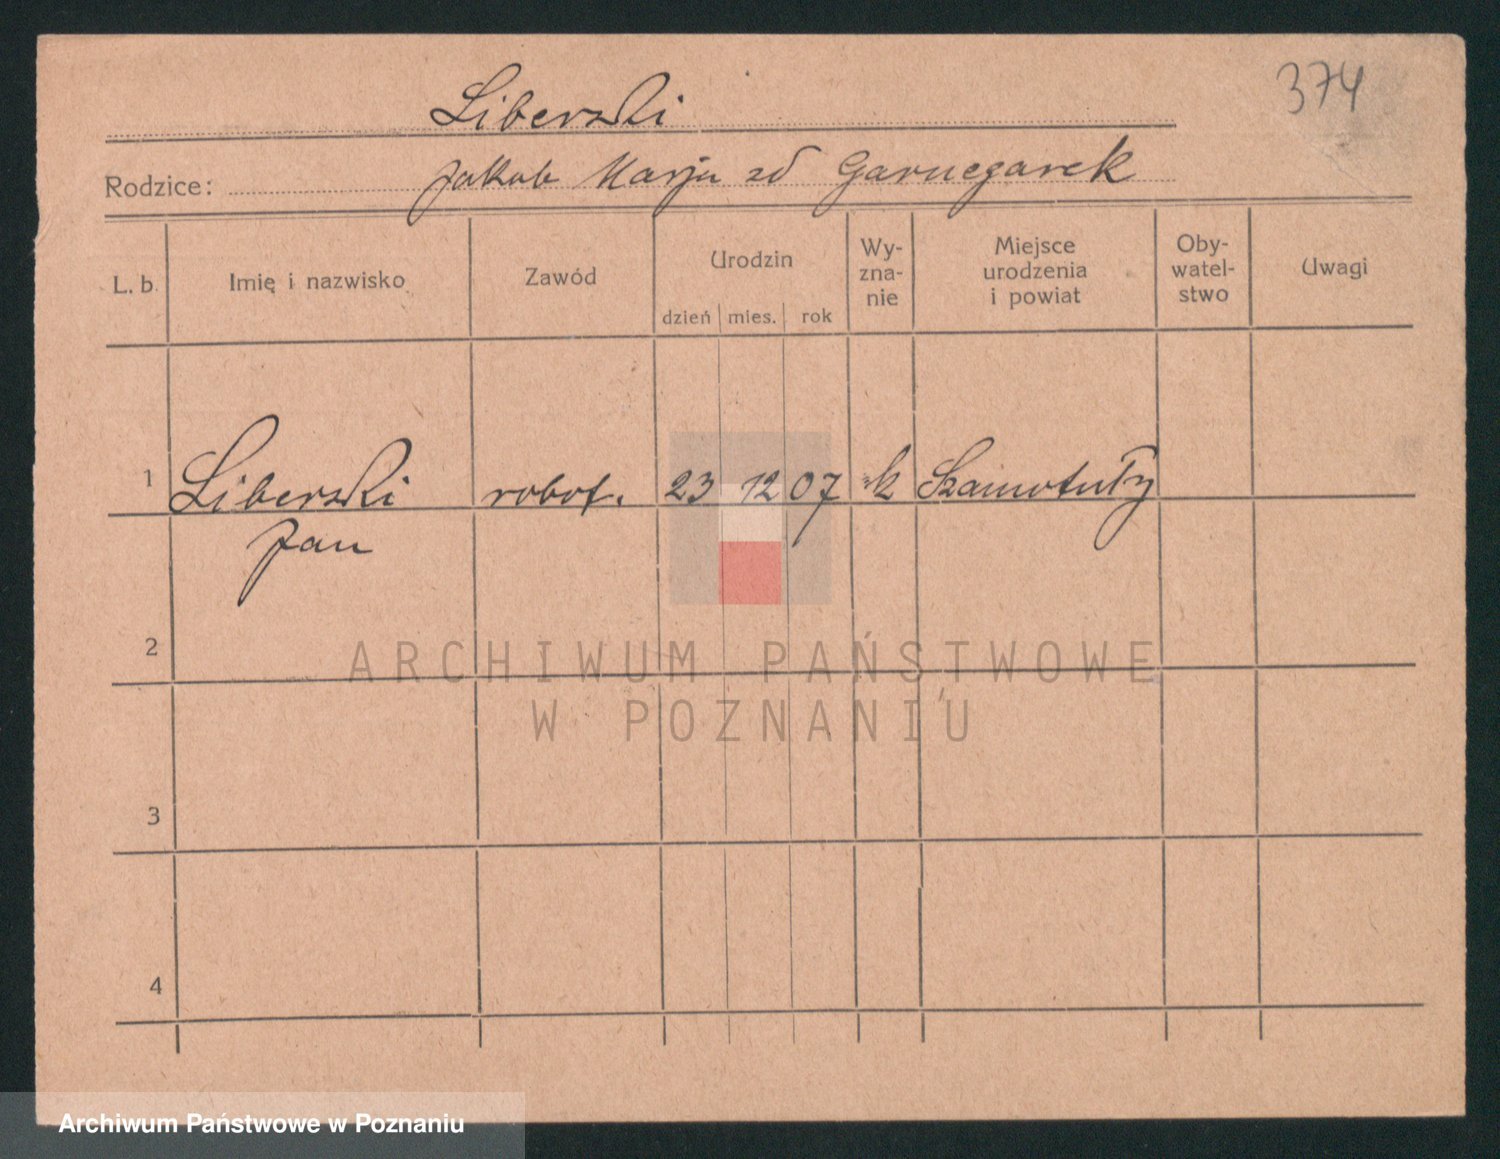 374
Liberski
Rodzice: Jakub Marja zd Garnczarek
L. b. Imię i nazwisko Zawód Urodzin dzień mies. rok Wy-zna-nie Miejsce urodzenia i powiat Oby-watel-stwo Uwagi
1 Liberski robot. 23 12 07 k Szamotuły
Jan
2
ARCHIWUM PAŃSTWOWE
W POZNANIU
3
4
Archiwum Państwowe w Poznaniu